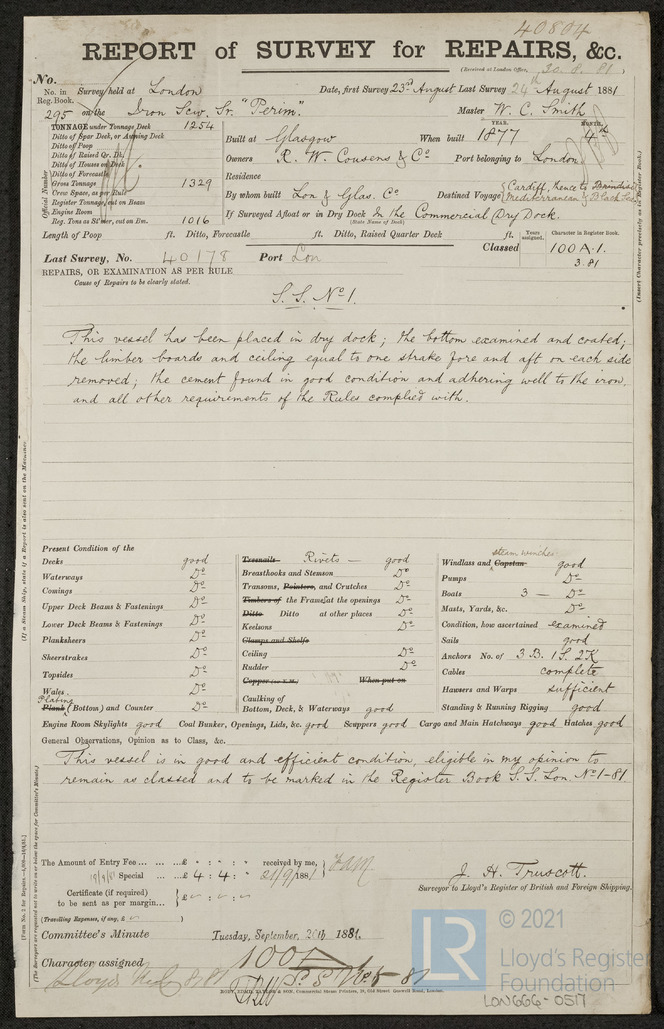 40804
REPORT of SURVEY for REPAIRS, &c.
(Received at London Office, 30.8.81)
No.
No. in Reg. Book. Survey held at London Date, first Survey 23rd August Last Survey 24th August 1881
295 on the Iron Scw. Sr. "Perim" Master W. C. Smith
TONNAGE under Tonnage Deck 1254
Ditto of Spar Deck, or Awning Deck
Ditto of Poop
Ditto of Raised Qr. Dk.
Ditto of Houses on Deck
Ditto of Forecastle
Gross Tonnage 1329
Crew Space, as per Rule
Register Tonnage, cut on Beam
Engine Room
Reg. Tons as Stmer, cut on Bm. 1016
Official Number
YEAR. MONTH.
Built at Glasgow When built 1877 4th
Owners R. W. Cousens & Co Port belonging to London
Residence
By whom built Lon & Glas. Co Destined Voyage Cardiff, thence to Brindisi Mediterranean & Black Sea
If Surveyed Afloat or in Dry Dock In the Commercial Dry Dock.
(State Name of Dock)
Length of Poop ft. Ditto, Forecastle ft. Ditto, Raised Quarter Deck ft.
Last Survey, No. 40178 Port Lon
Years assigned. Character in Register Book.
Classed 100 A.1.
3.81
REPAIRS, OR EXAMINATION AS PER RULE
Cause of Repairs to be clearly stated.
S. S. No 1.
This vessel has been placed in dry dock; the bottom examined and coated;
the limber boards and ceiling equal to one strake fore and aft on each side
removed; the cement found in good condition and adhering well to the iron,
and all other requirements of the Rules complied with.
Present Condition of the
Decks good
Waterways Do
Comings Do
Upper Deck Beams & Fastenings Do
Lower Deck Beams & Fastenings Do
Planksheers Do
Sheerstrakes Do
Topsides Do
Wales Do
Plating
Plank (Bottom) and Counter Do
Treenails Rivets — good
Breasthooks and Stemson Do
Transoms, Pointers, and Crutches Do
Timbers of the Frames at the openings Do
Ditto Ditto at other places Do
Keelsons Do
Clamps and Shelfs
Ceiling Do
Rudder Do
Copper (or Y.M.) When put on
Caulking of
Bottom, Deck, & Waterways good
steam winches
Windlass and Capstan good
Pumps Do
Boats 3 — Do
Masts, Yards, &c. Do
Condition, how ascertained examined
Sails good
Anchors No. of 3 B. 1 S. 2 K
Cables complete
Hawsers and Warps sufficient
Standing & Running Rigging good
Engine Room Skylights good Coal Bunker, Openings, Lids, &c. good Scuppers good Cargo and Main Hatchways good Hatches good
General Observations, Opinion as to Class, &c.
This vessel is in good and efficient condition, eligible in my opinion to
remain as classed and to be marked in the Register Book S. S. Lon. No 1-81
The Amount of Entry Fee ... £ : : received by me,
Special ... £ 4 : 4 : 21/9/1881
Certificate (if required)
to be sent as per margin... £
(Travelling Expenses, if any, £ )
J. H. Truscott.
Surveyor to Lloyd's Register of British and Foreign Shipping.
Committee's Minute Tuesday, September, 20th 1881.
Character assigned 100A
S.S. No 1 - 81
(If a Steam Ship, state if a Report is also sent on the Machinery.)
(Insert Character precisely as in Register Book.)
(The Surveyors are requested not to write on or below the space for Committee's Minute.)
LR
© 2021
Lloyd's Register
Foundation
LON666-0517